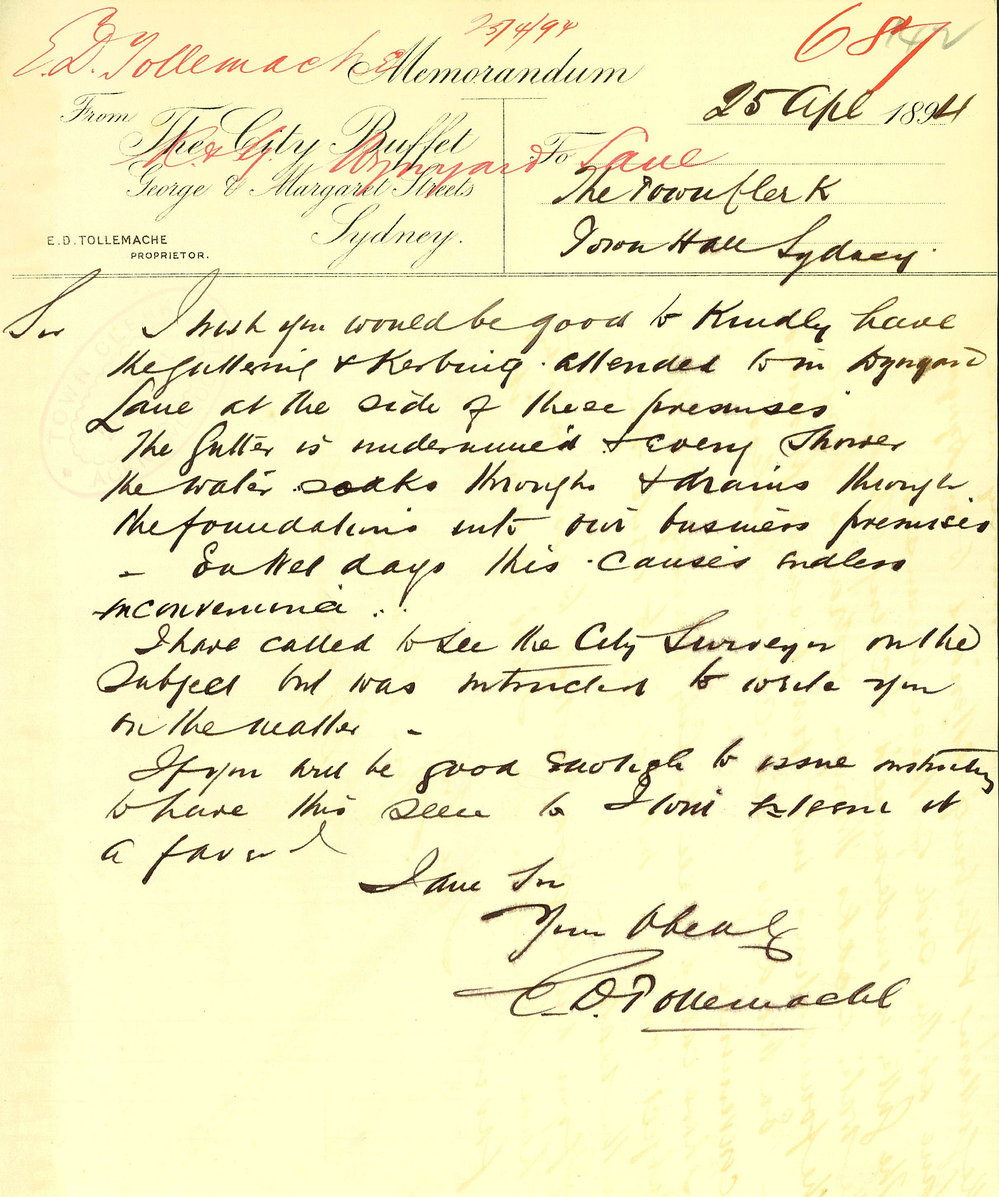 25/4/94
687
E.D. Tollemache
Memorandum
25 Apl 1894
From
The City Buffet
K & G. Wynyard Lane
To
George & Margaret Streets
The Town Clerk
Sydney.
Town Hall Sydney.
E.D. TOLLEMACHE
PROPRIETOR.
Sir I wish you would be good to Kindly have
the guttering & Kerbing attended to in Wynyard
Lane at the side of these premises
The Gutter is undermined & every shower
the water soaks through & drains through
the foundations into our business premises
- On Wet days this causes endless
inconvenience ..
I have called to see the City Surveyor on the
Subject but was instructed to write you
on the matter -
If you will be good enough to issue instructions
to have this seen to I will esteem it
a favor
I am Sir
Your Obedt
E.D. Tollemache
TOWN